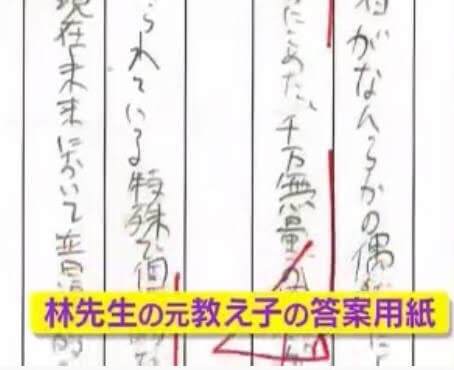 がなんらかの偶
たこめた、千万無量の
られている特殊で個
現在未来において
林先生の元教え子の答案用紙